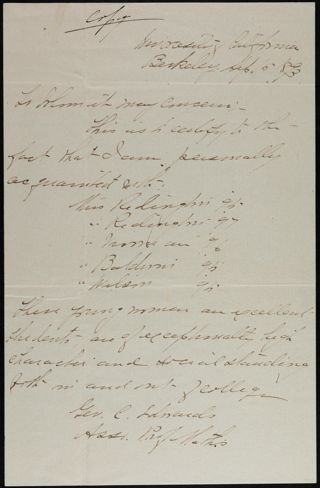 Copy
University California
Berkeley, Sep. 5 93
To Whom it may concern:-
This is to certify to the
fact that I am personally
acquainted with:-
Miss Redington
" Redington
"
" Baldwin
" Wilson
These young women are excellent
students are of exceptionally high
character and social standing
both in and out of college
Geo. C. Edwards
Asso. Prof. Maths